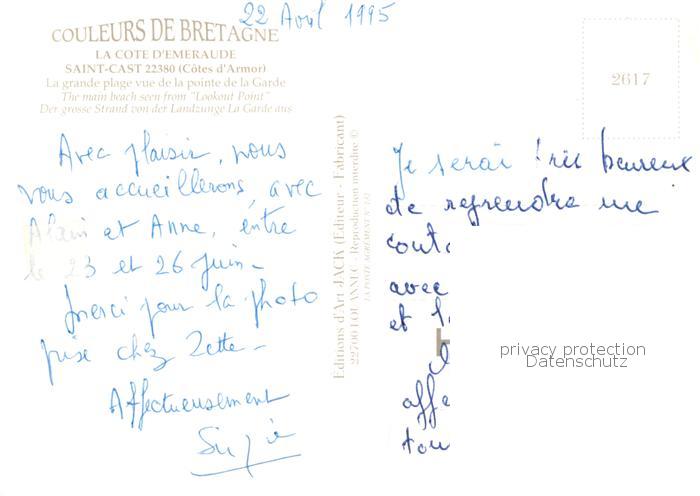 22 Avril 1995
COULEURS DE BRETAGNE
LA COTE D'EMERAUDE
SAINT-CAST 22380 (Côtes d'Armor)
La grande plage vue de la pointe de la Garde
The main beach seen from "Lookout Point"
Der grosse Strand von der Landzunge La Garde aus
2617
Avec plaisir, nous
vous accueillerons, avec
Alain et Anne, entre
le 23 et 26 juin -
merci pour la photo
prise chez Zette -
Affectueusement
Suzie
Editions d'Art JACK (Editeur - Fabricant)
22700 LOUANNEC - Reproduction interdite ©
Je serai très heureux
de reprendre une
avec
et
privacy protection
Datenschutz